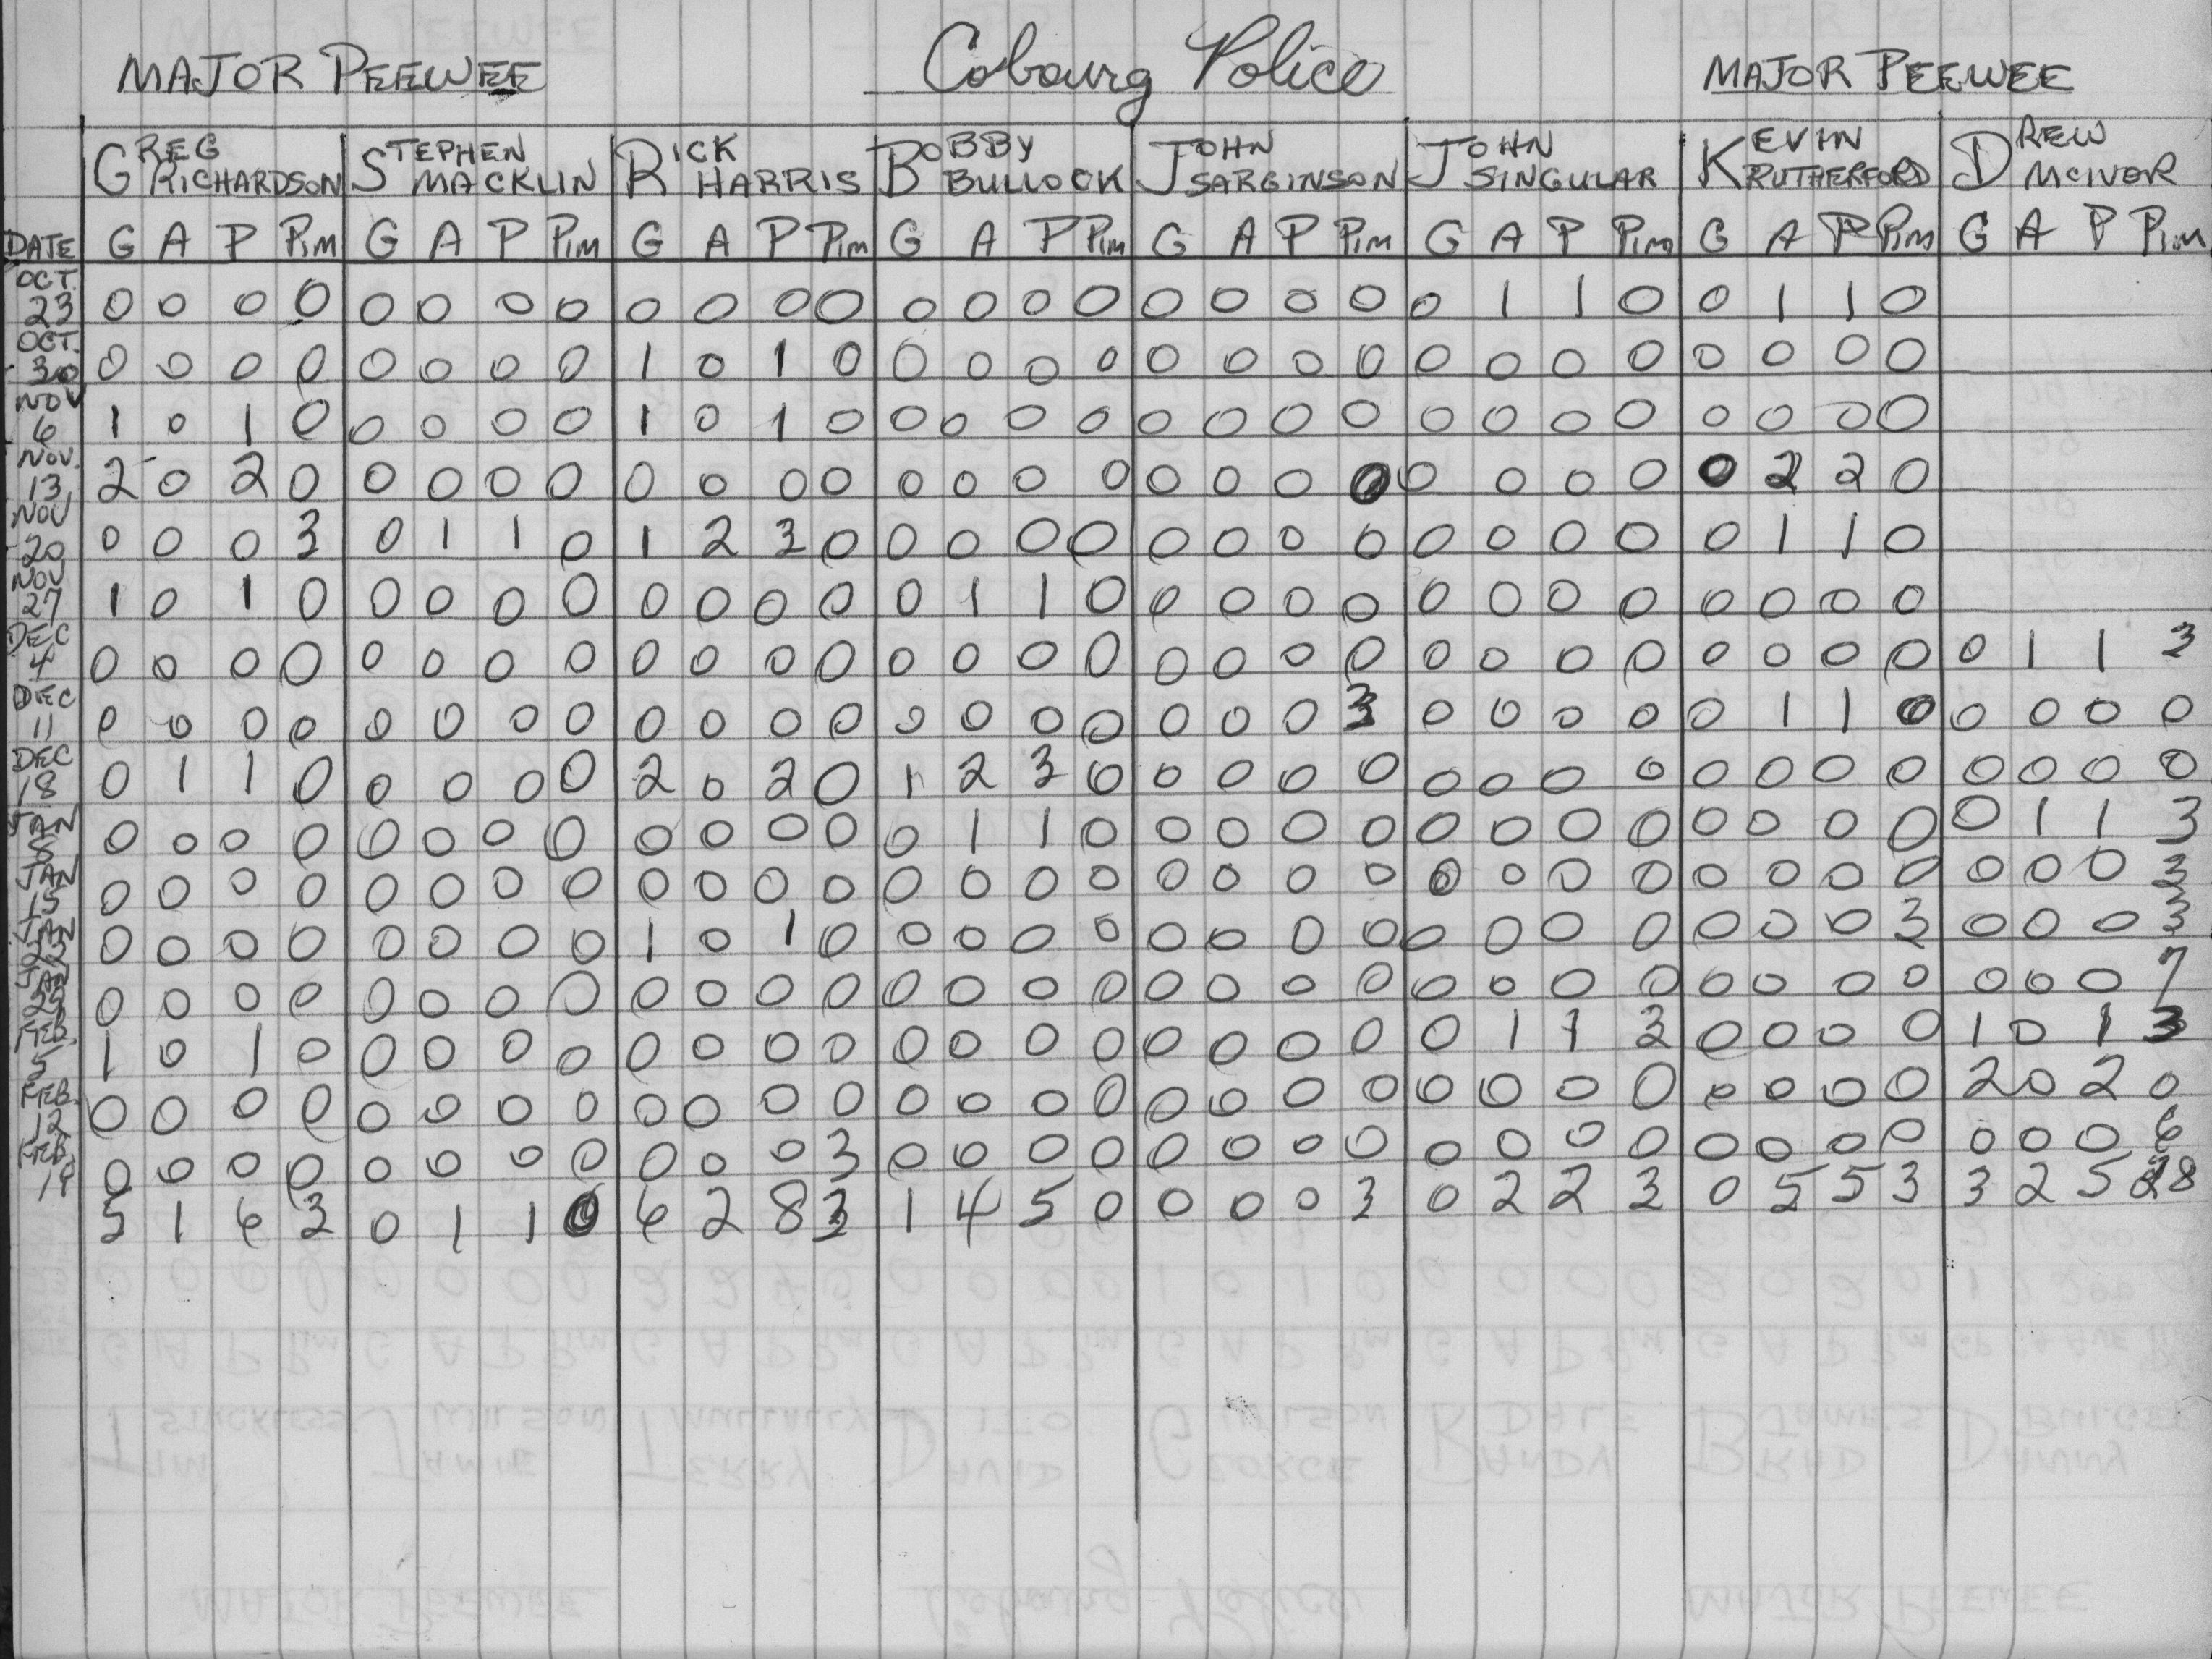 MAJOR PEEWEE Cobourg Police MAJOR PEEWEE
GREG RICHARDSON STEPHEN MACKLIN RICK HARRIS BOBBY BULLOCK JOHN SARGINSON JOHN SINGULAR KEVIN RUTHERFORD DREW MCIVOR
DATE G A P PIM G A P PIM G A P PIM G A P PIM G A P PIM G A P PIM G A P PIM G A P PIM
OCT. 23 0 0 0 0 0 0 0 0 0 0 0 0 0 0 0 0 0 0 0 0 0 1 1 0 0 1 1 0
OCT. 30 0 0 0 0 0 0 0 0 1 0 1 0 0 0 0 0 0 0 0 0 0 0 0 0 0 0 0 0
NOV 6 1 0 1 0 0 0 0 0 1 0 1 0 0 0 0 0 0 0 0 0 0 0 0 0 0 0 0 0
NOV. 13 2 0 2 0 0 0 0 0 0 0 0 0 0 0 0 0 0 0 0 0 0 0 0 0 0 2 2 0
NOV 20 0 0 0 3 0 1 1 0 1 2 3 0 0 0 0 0 0 0 0 0 0 0 0 0 0 1 1 0
NOV 27 1 0 1 0 0 0 0 0 0 0 0 0 0 1 1 0 0 0 0 0 0 0 0 0 0 0 0 0
DEC 4 0 0 0 0 0 0 0 0 0 0 0 0 0 0 0 0 0 0 0 0 0 0 0 0 0 0 0 0 0 1 1 3
DEC 11 0 0 0 0 0 0 0 0 0 0 0 0 0 0 0 0 0 0 0 3 0 0 0 0 0 1 1 0 0 0 0 0
DEC 18 0 1 1 0 0 0 0 0 2 0 2 0 1 2 3 0 0 0 0 0 0 0 0 0 0 0 0 0 0 0 0 0
JAN 0 0 0 0 0 0 0 0 0 0 0 0 0 1 1 0 0 0 0 0 0 0 0 0 0 0 0 0 0 1 1 3
JAN 15 0 0 0 0 0 0 0 0 0 0 0 0 0 0 0 0 0 0 0 0 0 0 0 0 0 0 0 0 0 0 0 3
JAN 22 0 0 0 0 0 0 0 0 1 0 1 0 0 0 0 0 0 0 0 0 0 0 0 0 0 0 0 3 0 0 0 3
0 0 0 0 0 0 0 0 0 0 0 0 0 0 0 0 0 0 0 0 0 0 0 0 0 0 0 0 0 0 0 7
FEB. 5 1 0 1 0 0 0 0 0 0 0 0 0 0 0 0 0 0 0 0 0 0 1 1 3 0 0 0 0 1 0 1 3
FEB. 12 0 0 0 0 0 0 0 0 0 0 0 0 0 0 0 0 0 0 0 0 0 0 0 0 0 0 0 0 2 0 2 0
FEB. 19 0 0 0 0 0 0 0 0 0 0 0 3 0 0 0 0 0 0 0 0 0 0 0 0 0 0 0 0 0 0 0 6
5 1 6 3 0 1 1 0 6 2 8 3 1 4 5 0 0 0 0 3 0 2 2 3 0 5 5 3 3 2 5 28